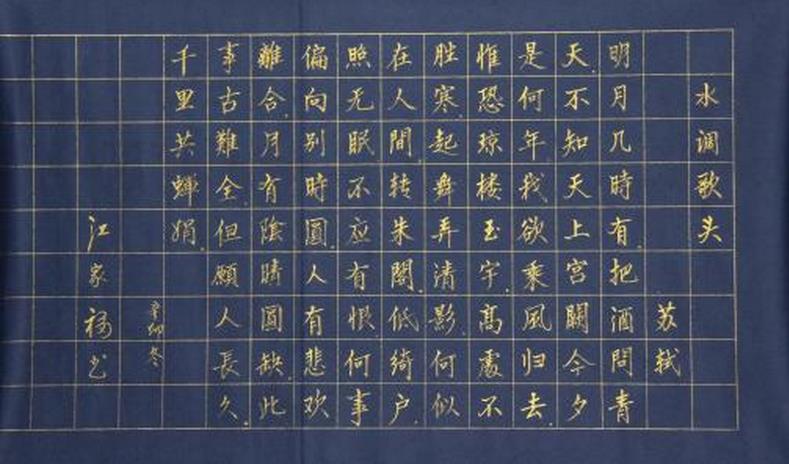 水调歌头
苏轼
明月几時有把酒問青
天.不知天上宫闕今夕
是何年我欲乘風归去.
惟恐琼楼玉宇.高處不
胜寒.起舞弄清影.何似
在人間.转朱閣.低绮户.
照无眠不应有恨.何事
偏向别時圓.人有悲欢
離合.月有陰晴圓缺.此
事古難全.但願人長久.
千里共蝉娟.
辛卯冬
江家书